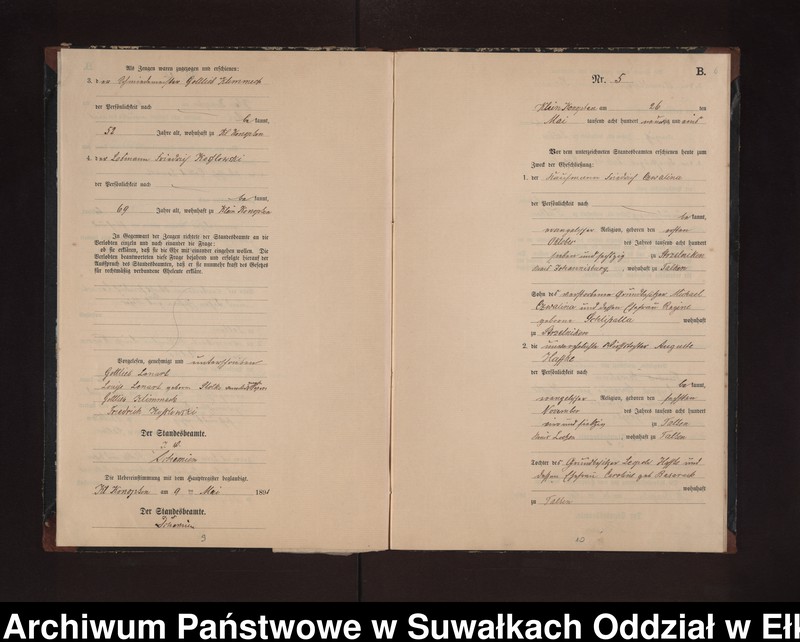 Als Zeugen waren zugezogen und erschienen:
3. der Schmiedemeister Gottlieb Klimmeck
der Persönlichkeit nach
be kannt,
52 Jahre alt, wohnhaft zu Kl Konopken
4. der Losmann Friedrich Koslowski
der Persönlichkeit nach
be kannt,
69 Jahre alt, wohnhaft zu Klein Konopken
In Gegenwart der Zeugen richtete der Standesbeamte an die
Verlobten einzeln und nach einander die Frage:
ob sie erklären, daß sie die Ehe mit einander eingehen wollen. Die
Verlobten beantworteten diese Frage bejahend und erfolgte hierauf der
Ausspruch des Standesbeamten, daß er sie nunmehr kraft des Gesetzes
für rechtmäßig verbundene Eheleute erkläre.
Vorgelesen, genehmigt und unterschrieben
Gottlieb
geborn
Gottlieb Klimmeck
Friedrich Koslowski
Der Standesbeamte.
Die Uebereinstimmung mit dem Hauptregister beglaubigt.
Kl Konopken am 9 ten Mai 1891
Der Standesbeamte.
9
B.
Nr. 5
Klein Konopken am 26 ten
Mai tausend acht hundert neunzig und eins
Vor dem unterzeichneten Standesbeamten erschienen heute zum
Zweck der Eheschließung:
1. der Kaufmann Friedrich Czwalina
der Persönlichkeit nach
be kannt,
evangelischer Religion, geboren den ersten
October des Jahres tausend acht hundert
sieben und sechzig zu Strzelniken
Kreis Johannisburg, wohnhaft zu Talken
Sohn des verstorbenen Grundbesitzer Michael
Czwalina und dessen Ehefrau Regine
geborene wohnhaft
zu Strzelniken
2. die unverehelichte Auguste
der Persönlichkeit nach
be kannt,
evangelischer Religion, geboren den sechsten
November des Jahres tausend acht hundert
ein und siebzig zu Talken
Kreis Loetzen, wohnhaft zu Talken
Tochter des Grundbesitzer und
dessen Ehefrau geb
wohnhaft
zu Talken
10
Archiwum Państwowe w Suwałkach Oddział w Ełk